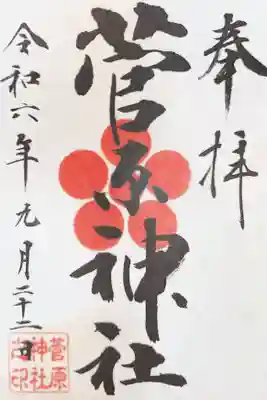 奉拝
菅原神社
令和六年 九月二十二日
菅原
神社
之印